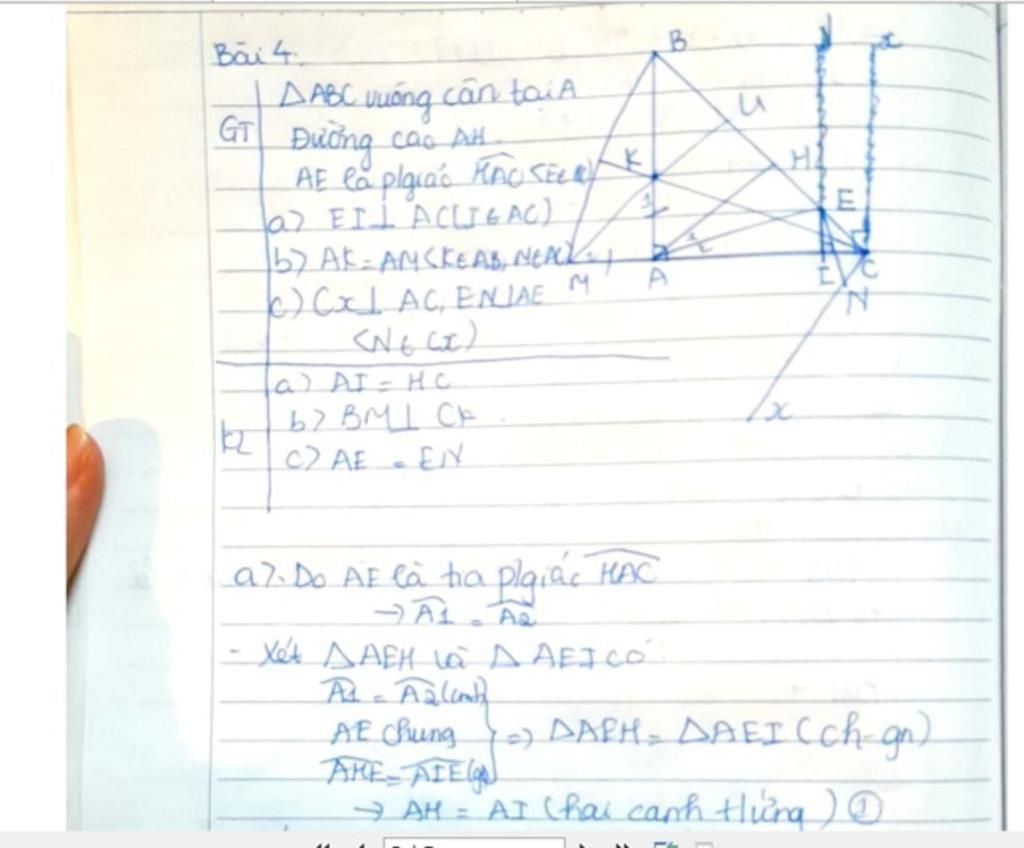 Bài 4.
GT
ΔABC vuông cân tại A
Đường cao AH.
AE là p/giác HAC
a) EI⊥ AC(I∈AC)
b) AK=AM(K∈AB,
c) Cx⊥ AC, EN⊥AE
(N∈Cx)
KL
a) AI = HC
b) BM⊥ CK
c) AE = EN
B
U
x
K
H
E
1
1
2
M
A
I
C
N
x
a). Do AE là tia p/giác HAC
→ A1 = A2
- Xét ΔAEH và ΔAEI có:
A1 = A2 (cmt)
AE chung
AHE = AIE (gt)
=> ΔAEH = ΔAEI (ch-gn)
→ AH = AI (hai cạnh t/ứng) ①